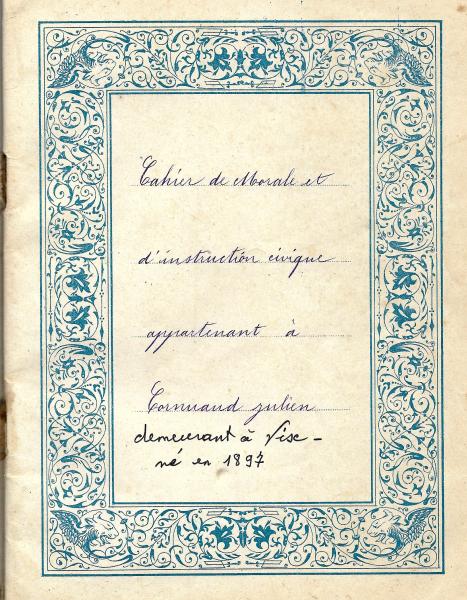 Cahier de Morale et
d'instruction civique
appartenant à
Cornuaud Julien
demeurant à Vise -
né en 1897